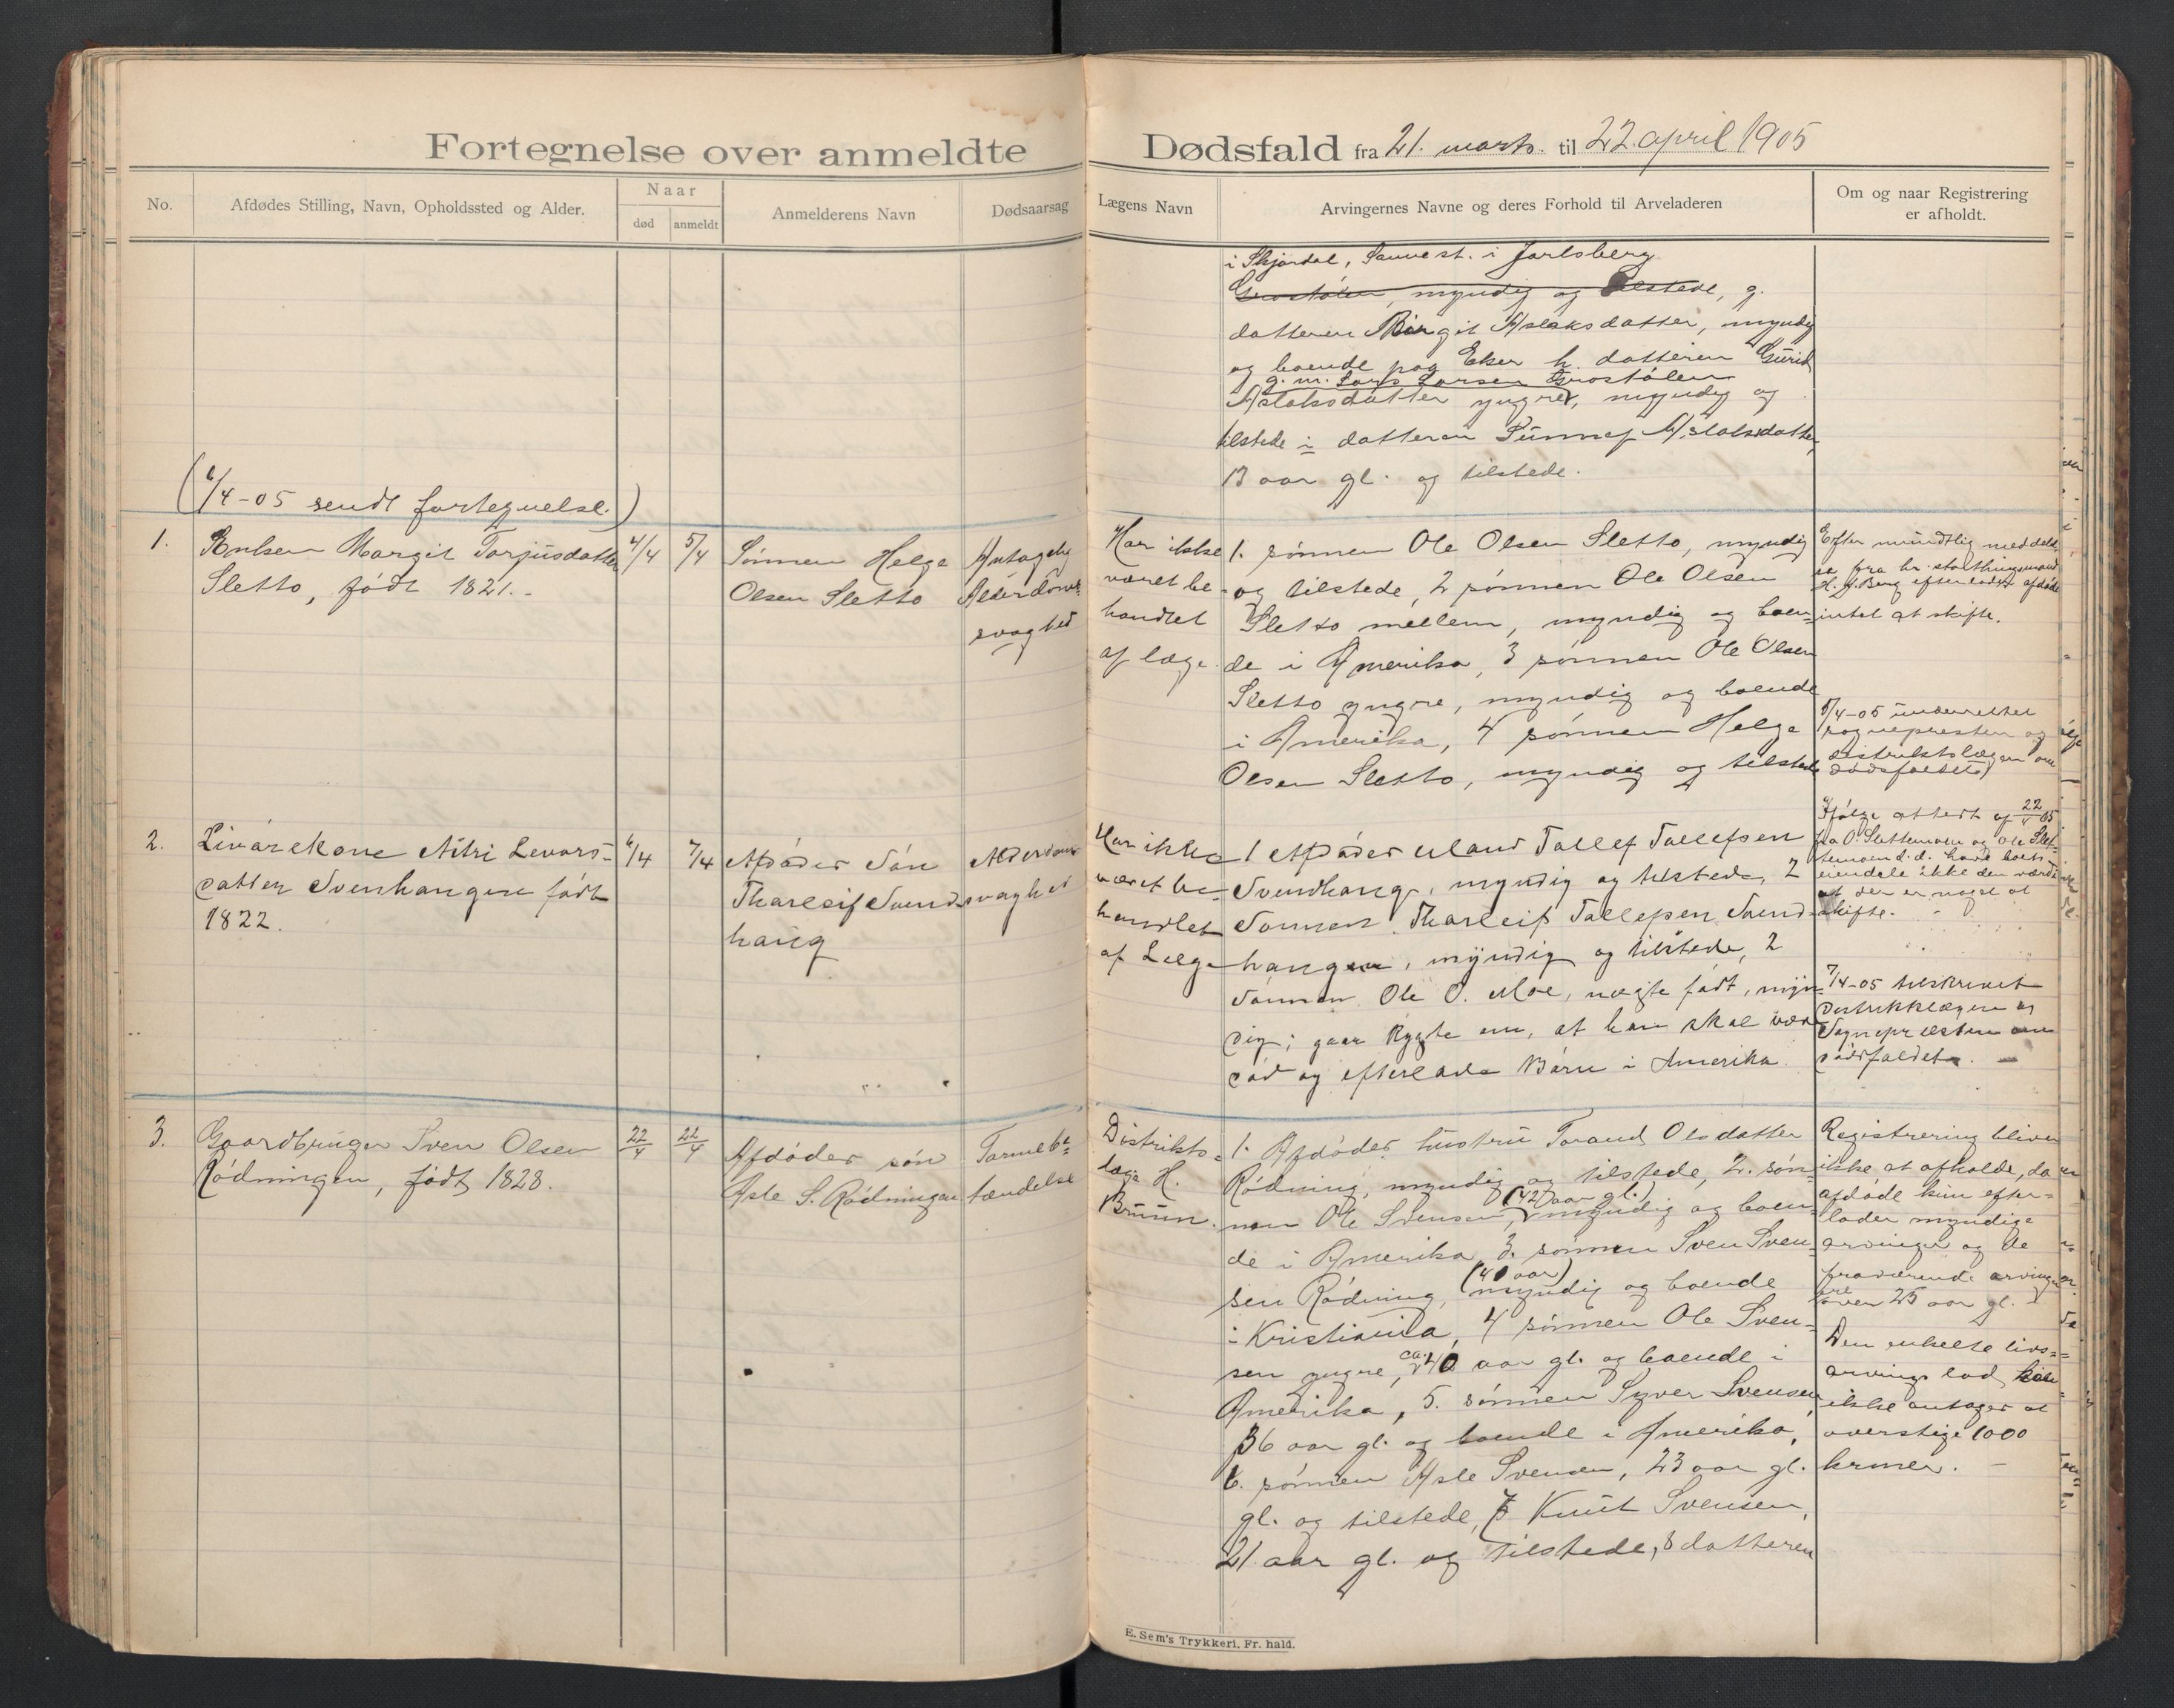 Fortegnelse over anmeldte Dødsfald fra 21. marts. til 22. april 1905
No.
Afdødes Stilling, Navn, Opholdssted og Alder.
Naar
død
anmeldt
Anmelderens Navn
Dødsaarsag
Lægens Navn
Arvingernes Navne og deres Forhold til Arveladeren
Om og naar Registrering
er afholdt.
i Skjørdal, Sanne st. i Jarlsberg
Grostølen, myndig og tilstede, g.
datteren Birgit Aslaksdatter, myndig
og boende paa Eker h. datteren Gurid
g. m. Lars Larsen Grostølen
Aslaksdatter yngre, myndig og
tilstede i datteren Sunnef Aslaksdatter,
13 aar gl. og tilstede.
(6/4-05 sendt fortegnelse.)
1.
Enken Margit Tarjusdatter
Sletto, født 1821.-
4/4
5/4
Sønnen Helge
Olsen Sletto
Antagelig
Alderdoms
svaghed
Har ikke
været be-
handlet
af læge.
1. sønnen Ole Olsen Sletto, myndig
og tilstede, 2 sønnen Ole Olsen
Sletto mellem, myndig og boen-
de i Amerika, 3 sønnen Ole Olsen
Sletto yngre, myndig og boende
i Amerika, 4 sønnen Helge
Olsen Sletto, myndig og tilstede
Efter mundtlig meddelel
se fra hr. storthingsmand
Berg efterlader afdøde
intet at skifte.
5/4-05 underrettet
sognepresten og
distriktslægen om
dødsfaldet)
2.
Livørekone Aitri Levors-
datter Svenhangen født
1822.
6/4
7/4
Afdødes Søn
Tharleif Svend-
haug
Alderdoms
svaghed
Har ikke
været be-
handlet
af Læge
1 Afdødes Mand Tallef Tallefsen
Svendhaug, myndig og tilstede, 2
Sønnen Tharleif Tallefsen Svend-
haugen, myndig og tilstede, 2
Sønnen Ole O. Moe, uægte født, myn-
dig; gaar Rygte om, at han skal være
død og efterlade Børn i Amerika.
Ifølge attest af 22/4 05
fra O. Slettemoen og Ole Slet-
temoen d. d. havde boets
eiendele ikke den værdi
at der er noget at
skifte.
7/4-05 tilskrevet
Distriktslægen og
Sognepresten om
dødsfaldet. -
3.
Gaardbruger Sven Olsen
Rødningen, født 1828.
22/4
22/4
Afdødes søn
Asle S. Rødningen
Tarmebe-
tændelse
Distrikts-
læge H.
Bruun.
1. Afdødes hustru Torand Olsdatter
Rødning, myndig og tilstede, 2. søn-
(42 aar gl.)
nen Ole Svensen, myndig og boen-
de i Amerika, 3. sønnen Sven Sven-
(41 aar)
sen Rødning, myndig og boende
i Kristiania, 4 sønnen Ole Sven-
sen yngre, ca. 40 aar gl. og boende i
Amerika, 5. sønnen Syver Svensen
36 aar gl. og boende i Amerika,
6. sønnen Asle Svensen, 23 aar gl.
gl. og tilstede, 7 Knut Svensen,
21 aar gl. og tilstede, 8 datteren
Registrering bliver
ikke at afholde, da
afdøde kun efter-
lader myndige
arvinger og de
fraværende arvinger
ere
over 25 aar gl.
Den enkelte livs-
arvings lod kan
ikke antages at
overstige 1000
kroner. -
E. Sem's Trykkeri. Fr. hald.